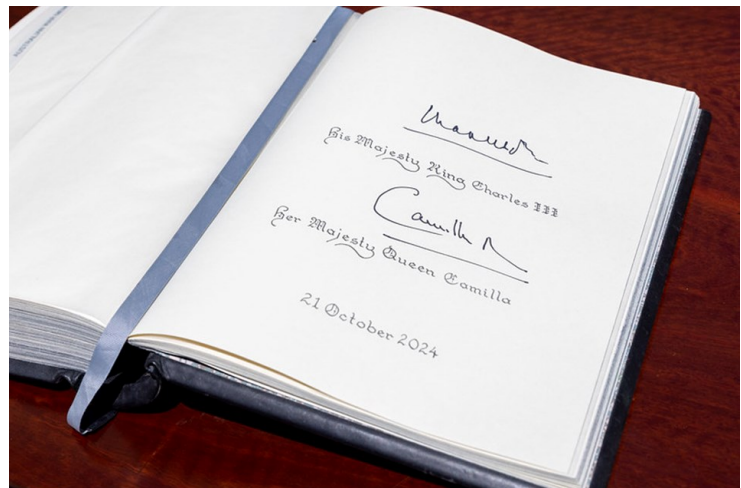 Charles R
His Majesty King Charles III
Camilla R
Her Majesty Queen Camilla
21 October 2024